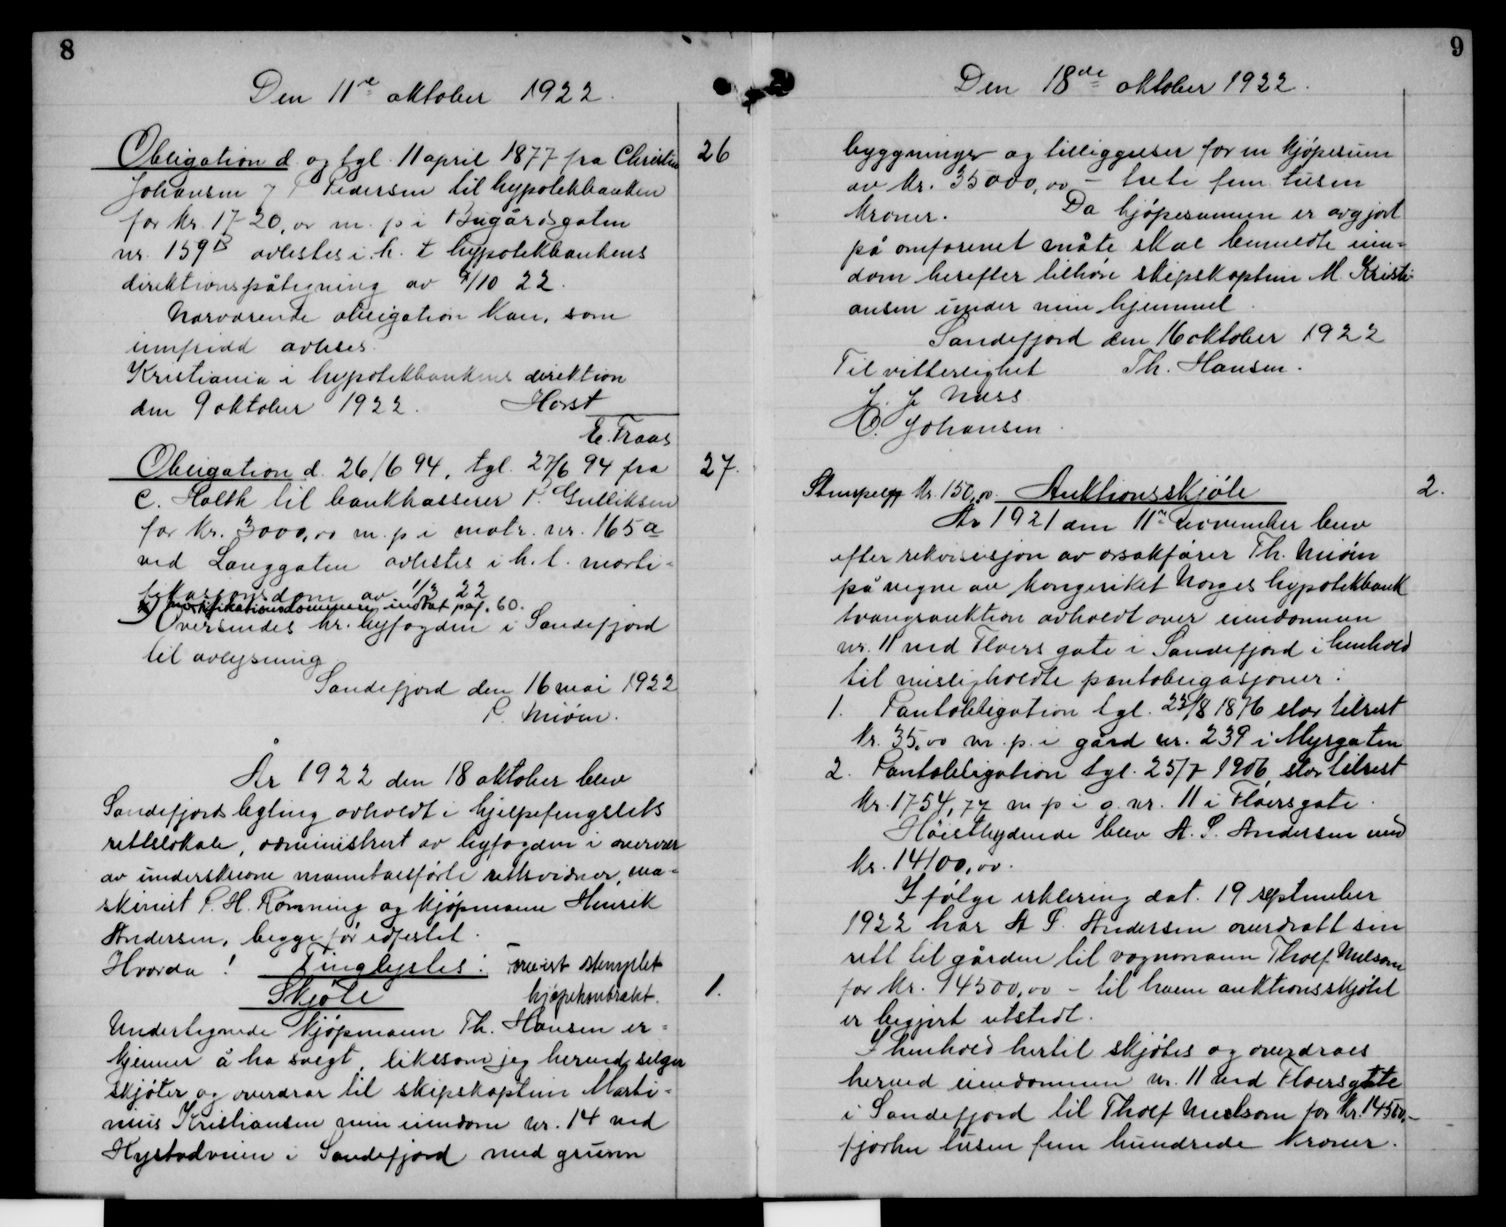 8
Den 11te oktober 1922.
Obligation d. og tgl. 11 april 1877 fra Christian 26
Johansen P Pedersen til hypotekbanken
for kr. 1720,00 m. p i Bugårdsgaten
nr. 159B avlestes i h. t hypotekbankens
direktionspåtegning av 9/10 22.
Nærværende obligation kan, som
innfridd avleses.
Kristiania i hypotekbankens direktion
den 9 oktober 1922. Horst
E. Traas
Obligation d. 26/6 94, tgl. 27/6 94 fra 27.
C. Holth til bankkasserer P. Gulliksen
for kr. 3000,00 m. p i matr. nr. 165a
ved Langgaten avlestes i h. t. morti-
fikasjonsdom av 1/3 22
x) mortifikationsdommen indtat pag. 60.
Oversendes hr. byfogden i Sandefjord
til avlysning
Sandefjord den 16 mai 1922
P. Miøen.
År 1922 den 18 oktober blev
Sandefjords byting avholdt i hjelpefengslets
rettslokale, administrert av byfogden i overvær
av underskrevne manntalsførte rettsvidner, ma-
skinist P. H. Rømning og kjøpmann Henrik
Andersen, begge før edfestet.
Hvorda! Tinglystes: revist stemplet
Skjøte kjøpekontrakt. 1.
Undertegnede kjøpmann Th. Hansen er-
kjenner å ha solgt, likesom jeg herved selger
skjøter og overdrar til skipskaptein Marti-
nius Kristiansen min eiendom nr. 14 ved
Hystadveien i Sandefjord med grunn
9
Den 18de oktober 1922.
bygninger og tilliggelser for en kjøpesum
av kr. 35000,00 – treti fem tusen
kroner. Da kjøpesummen er avgjort
på omforenet måte skal bemeldte eien-
dom herefter tilhøre skipskaptein M Kristi-
ansen under min hjemmel
Sandefjord den 16 oktober 1922
Til vitterlighet Th. Hansen.
J. J. Næss
O. Johansen.
Stempelg kr. 150,00 Auktionsskjøte 2.
År 1921 den 11te november blev
efter rekvisisjon av orsakfører Th. Miøen
på vegne av kongeriket Norges hypotekbank
tvangsauktion avholdt over eiendommen
nr. 11 ved Floers gate i Sandefjord i henhold
til misligholdte pantobligasjoner:
1. Pantobligation tgl. 23/8 1876 stor tilrest
kr. 35,00 m. p. i gård nr. 239 i Myrgaten
2. Pantobligation tgl. 25/7 1906, stor tilrest
kr. 1754,77 m p i g. nr. 11 i Floersgate.
Høistbydende blev A. P. Andersen med
kr. 14100,00.
I følge erklæring dat. 19 september
1922 har A P. Andersen overdratt sin
rett til gården til vognmann Tholf Melsom
for kr. 14500,00 – til hvem auktionsskjøtet
er begjært utstedt.
I henhold hertil skjøtes og overdraes
herved eiendommen nr. 11 ved Floersgate
i Sandefjord til Tholf Melsom for kr. 14500,–
fjorten tusen fem hundrede kroner.